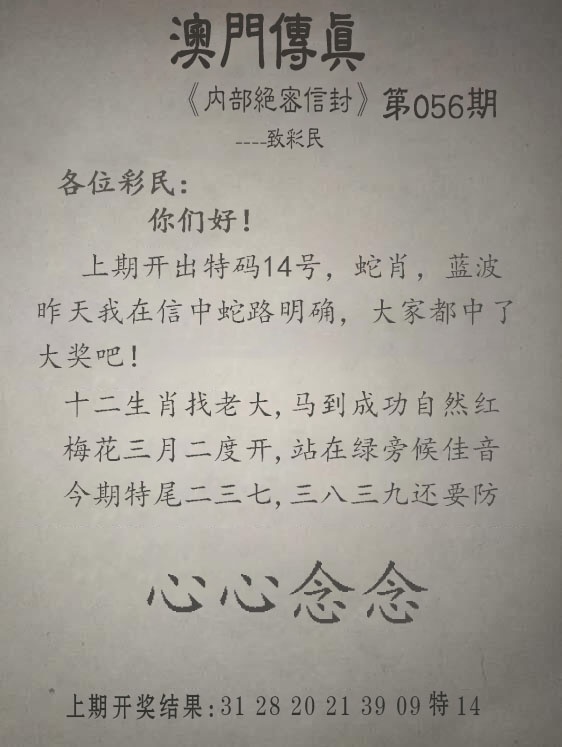 澳門傳眞
《内部絕密信封》第056期
----致彩民
各位彩民：
你们好！
上期开出特码14号，蛇肖，蓝波
昨天我在信中蛇路明确，大家都中了
大奖吧！
十二生肖找老大,马到成功自然红
梅花三月二度开,站在绿旁候佳音
今期特尾二三七,三八三九还要防
心心念念
上期开奖结果:31 28 20 21 39 09 特 14